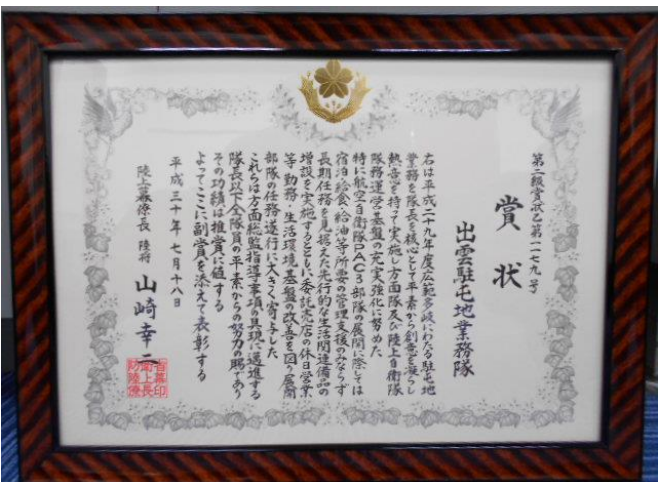 第二級賞状乙第一一七九号
賞状
出雲駐屯地業務隊
右は平成二十九年度広範多岐にわたる駐屯地
業務を隊長を核心として平素から創意を凝らし
熱意を持って実施し方面隊及び陸上自衛隊
隊務運営基盤の充実強化に努めた
特に航空自衛隊PAC3部隊の展開に際しては
宿泊給食給油等所要の管理支援のみならず
長期任務を見据えた先行的な生活関連備品の
増設を実施するとともに委託売店の休日営業
等勤務・生活環境基盤の改善を図り展開
部隊の任務遂行に大きく寄与した
これらは方面総監指導事項の具現に邁進する
隊長以下全隊員の平素からの努力の賜であり
その功績は推賞に値する
よってここに副賞を添えて表彰する
平成三十年七月十八日
陸上幕僚長 陸将 山崎幸二